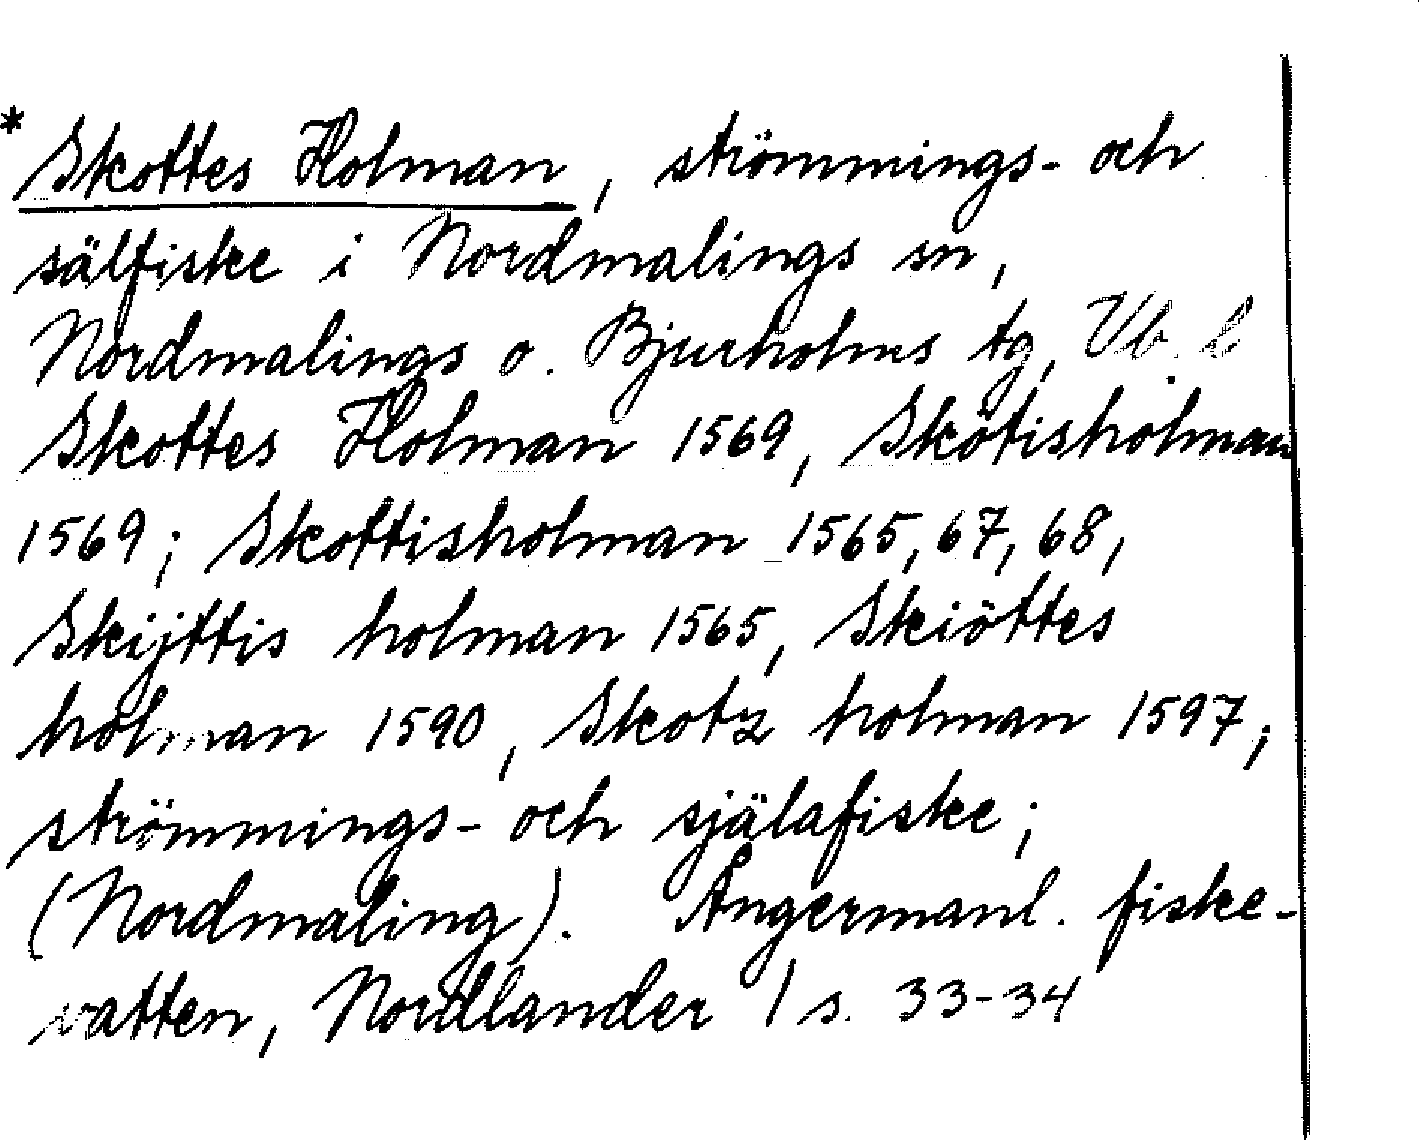 * Skottes Holman, strömmings- och
sälfiske i Nordmalings sn,
Nordmalings o. Bjurholms tg, Vb. l
Skottes Holman 1569, Skötisholman
1569; Skottisholman 1565, 67, 68,
Skijttis holman 1565, Skiöttes
holman 1590, Skotz holman 1597;
strömmings- och själafiske;
(Nordmaling). Ångermanl. fiske-
vatten, Nordlander / s. 33-34